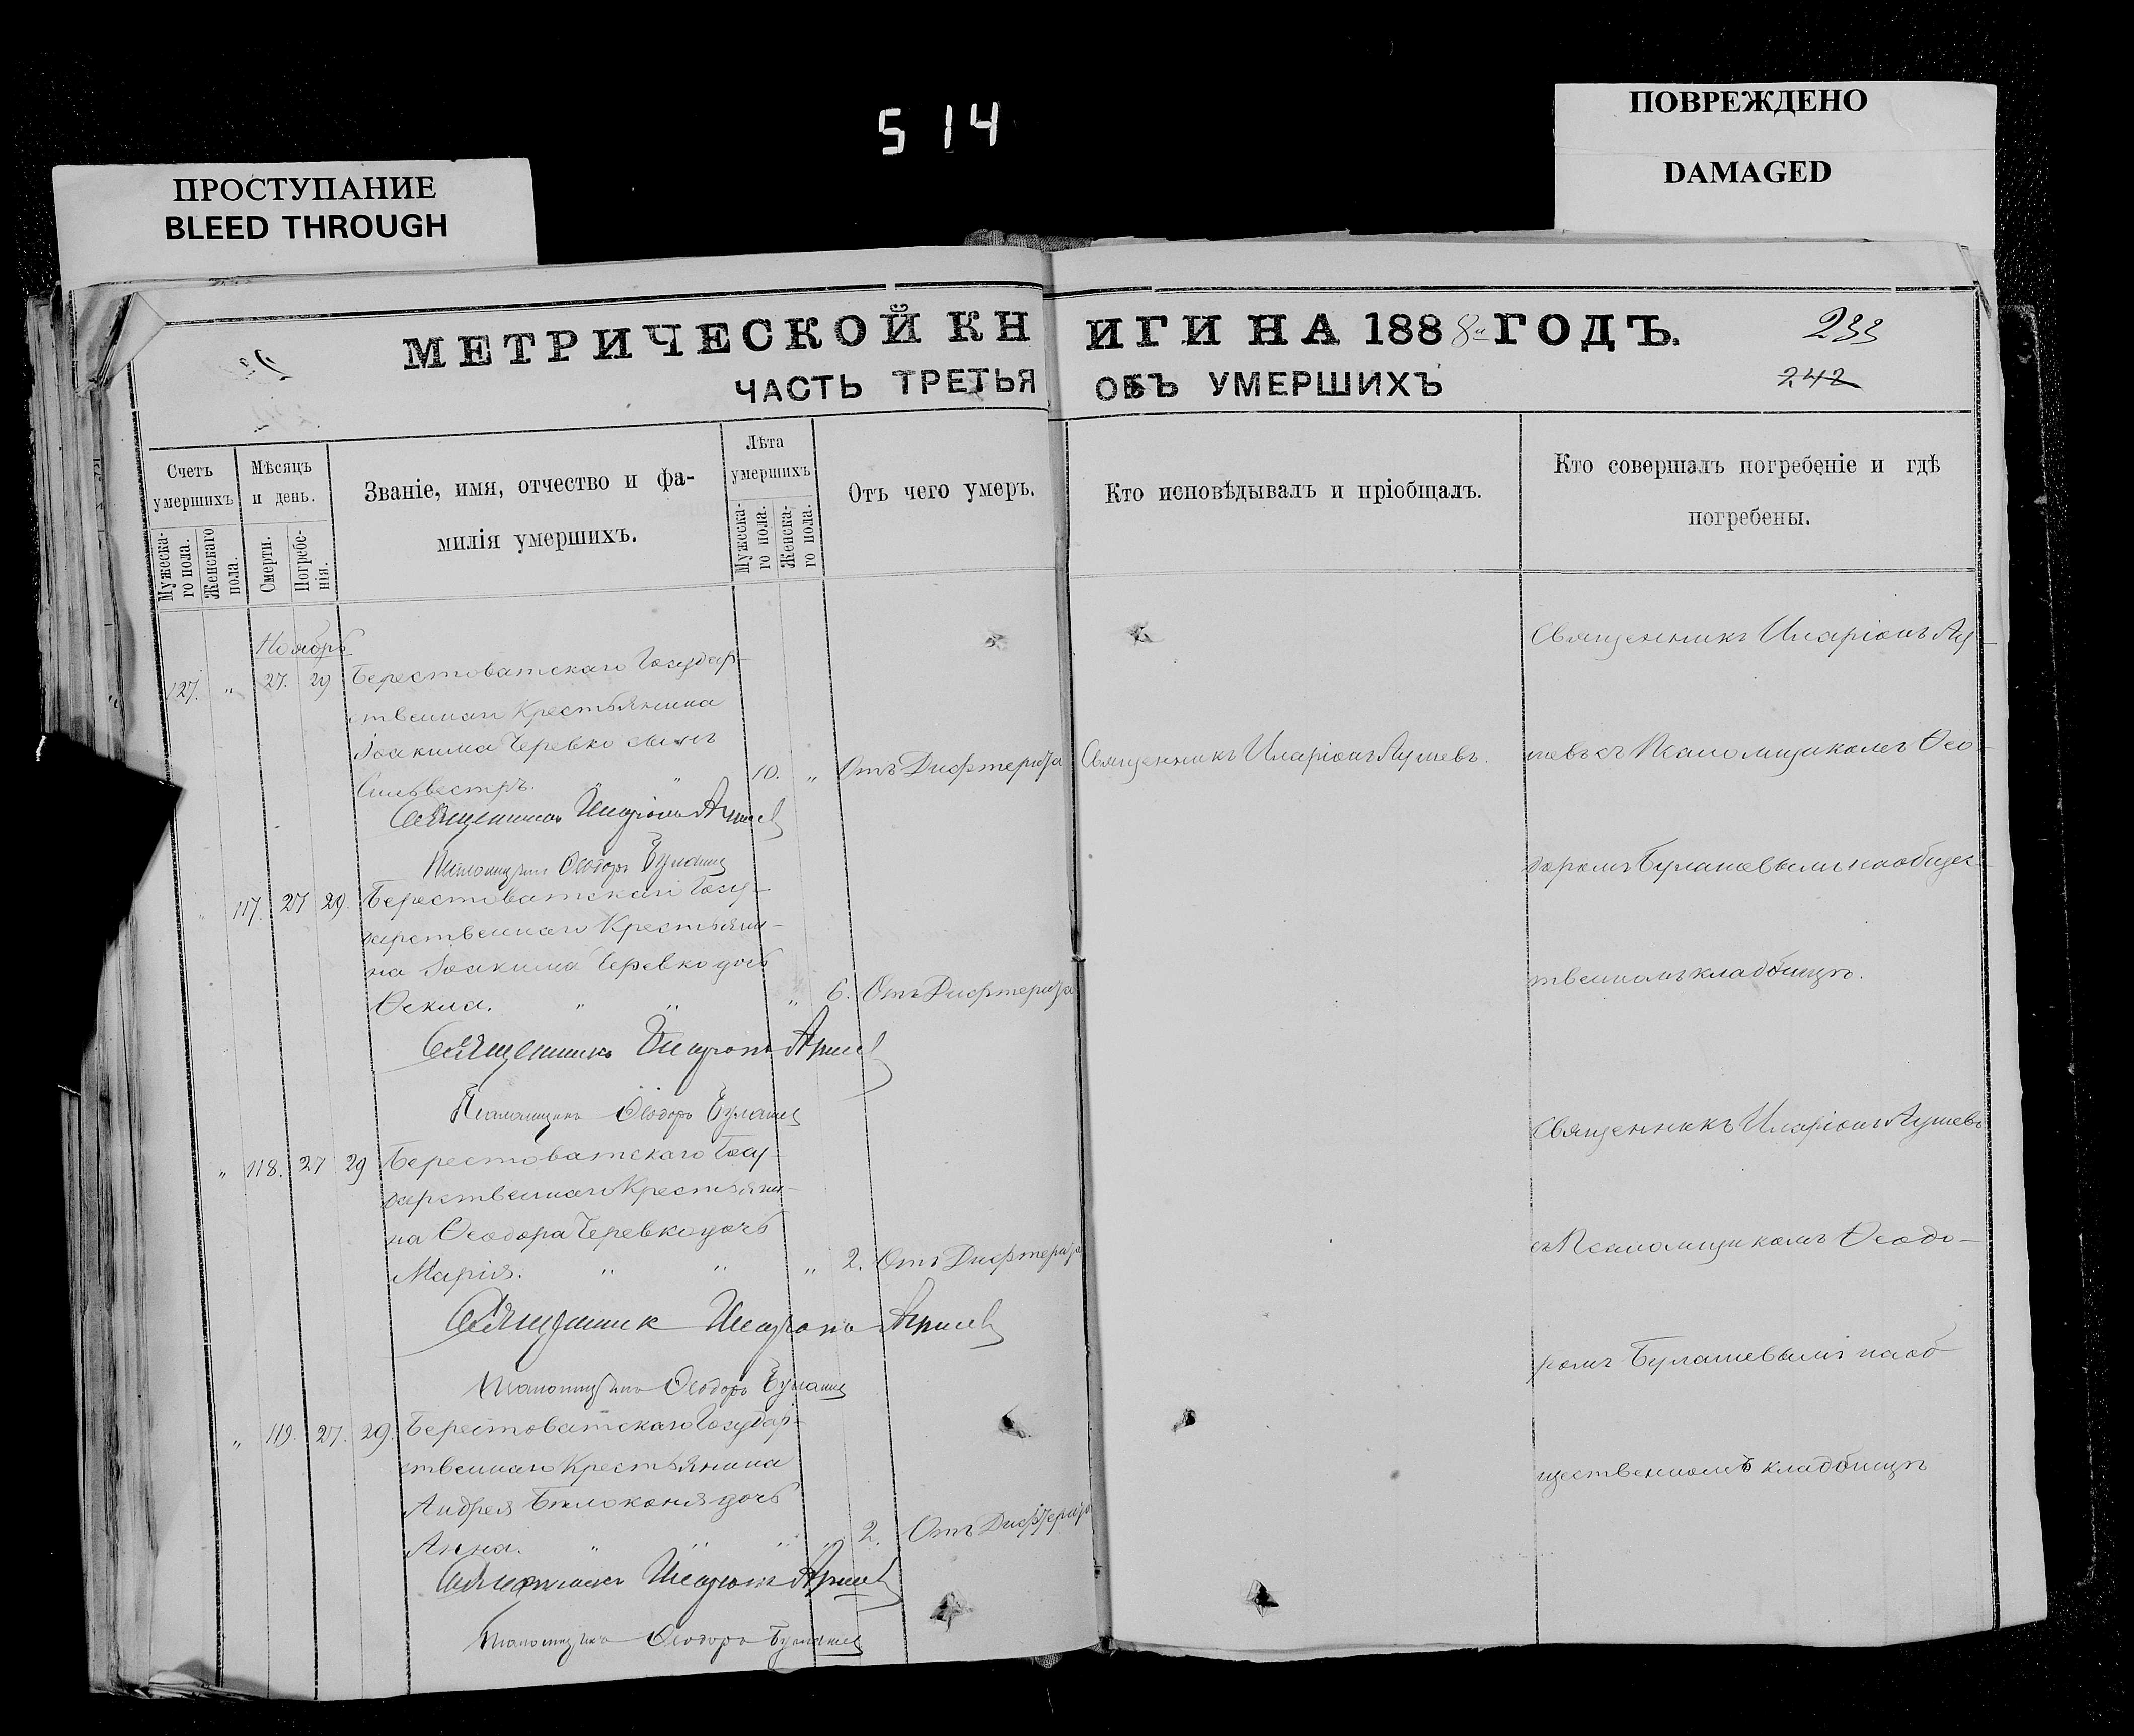 514
ПРОСТУПАНИЕ
BLEED THROUGH
ПОВРЕЖДЕНО
DAMAGED
МЕТРИЧЕСКОЙ КНИГИ НА 1888й ГОДЪ.
233
242
ЧАСТЬ ТРЕТЬЯ ОБЪ УМЕРШИХЪ
Счетъ умершихъ
Мужескаго пола.
Женскаго пола.
Мѣсяцъ и день.
Смерти.
Погребенія.
Званіе, имя, отчество и фа-
милія умершихъ.
Лѣта умершихъ
Мужескаго пола.
Женскаго пола.
Отъ чего умеръ.
Кто исповѣдывалъ и пріобщалъ.
Кто совершалъ погребеніе и гдѣ
погребены.
Ноябрь
127. " 27. 29 Берестоватскаго Государ-
ственнаго Крестьянина
Іоакима Черевко сынъ
Сильвестръ. " " 10. " Отъ Дифтерита
Священникъ Иларіонъ
Священникъ Иларіонъ
Псаломщикъ Ѳеодоръ
" 117. 27 29. Берестоватскаго Госу-
дарственнаго Крестьяни-
на Іоакима Черевко дочь
Ѳекла. " " " 6. Отъ Дифтерита
Священникъ Иларіонъ
Псаломщикъ Ѳеодоръ
" 118. 27 29 Берестоватскаго Госу-
дарственнаго Крестьяни-
на Ѳеодора Черевко дочь
Марія. " " " 2. Отъ Дифтерита
Священник Иларіонъ
Псаломщикъ Ѳеодоръ
" 119. 27. 29. Берестоватскаго Государ-
ственнаго Крестьянина
Андрея Бѣлоконя дочь
Анна. " " " " 2. Отъ Дифтерита
Священникъ Иларіонъ
Псаломщикъ Ѳеодоръ
Священникъ Иларіонъ
съ Псаломщикомъ Ѳео-
доромъ на общес-
твенномъ кладбищѣ.
Священникъ Иларіонъ
съ Псаломщикомъ Ѳеодо-
ромъ на об
щественномъ кладбищѣ